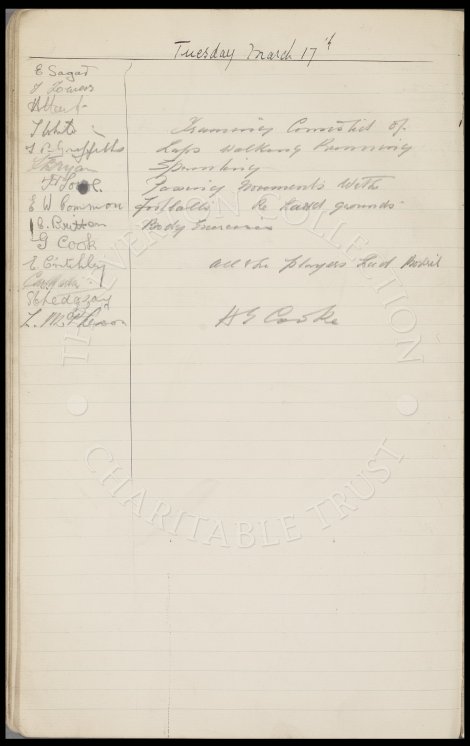 Tuesday March 17th
E Sagar
J Towers
T White
T. P. Griffiths
T Bryan
E W Common
C. Britton
G Cook
E Critchley
L. McPherson
Trainning Consisted of
Laps Walking Running
Sprinting
Passing Movments With
footballs Re Hard grounds.
Body Exercises
All the Players Had
H G Cooke
THE EVERTON COLLECTION
CHARITABLE TRUST